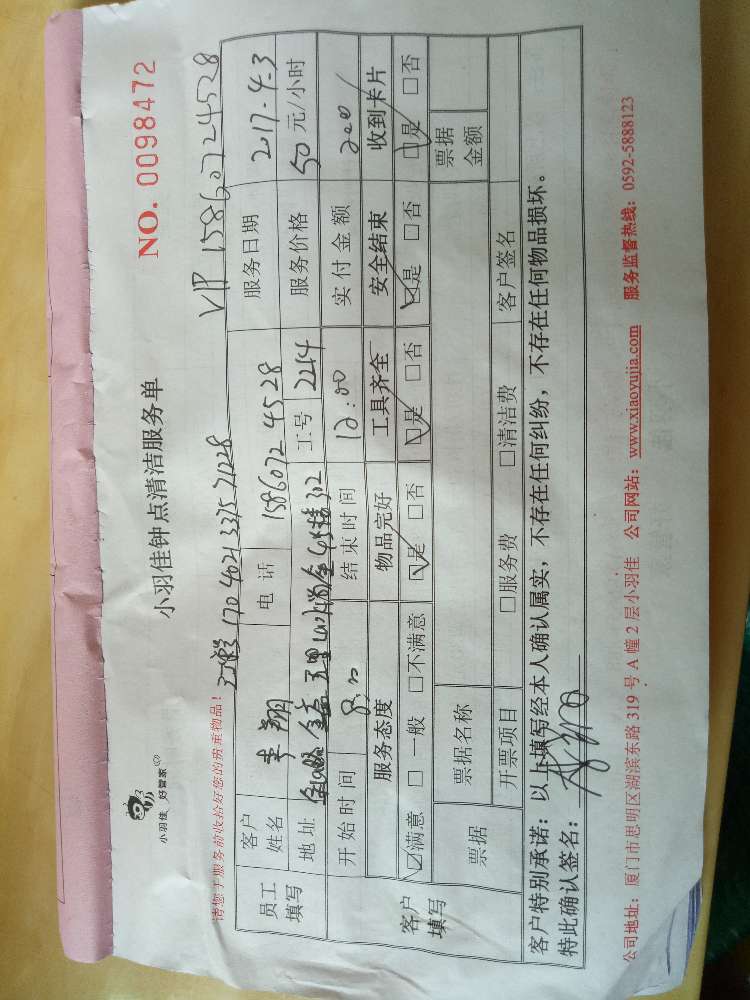 小羽佳 好管家
小羽佳钟点清洁服务单
NO. 0098472
请您于服务前收拾好您的贵重物品！
170 4021 3375 71228
VIP 15860724528
员工填写
客户姓名 李翔 电话 15860724528 服务日期 217-4-3
地址 工号 2214 服务价格 50 元/小时
开始时间 8:00 结束时间 12:00 实付金额 200
客户填写
服务态度 物品完好 工具齐全 安全结束 收到卡片
☑满意 □一般 □不满意 ☑是 □否 ☑是 □否 ☑是 □否 ☑是 □否
票据 票据名称 票据金额
开票项目 □服务费 □清洁费 客户签名
客户特别承诺：以上填写经本人确认属实，不存在任何纠纷，不存在任何物品损坏。
特此确认签名：
公司地址：厦门市思明区湖滨东路 319 号 A 幢 2 层小羽佳 公司网站：www.xiaoyujia.com 服务监督热线：0592-5888123